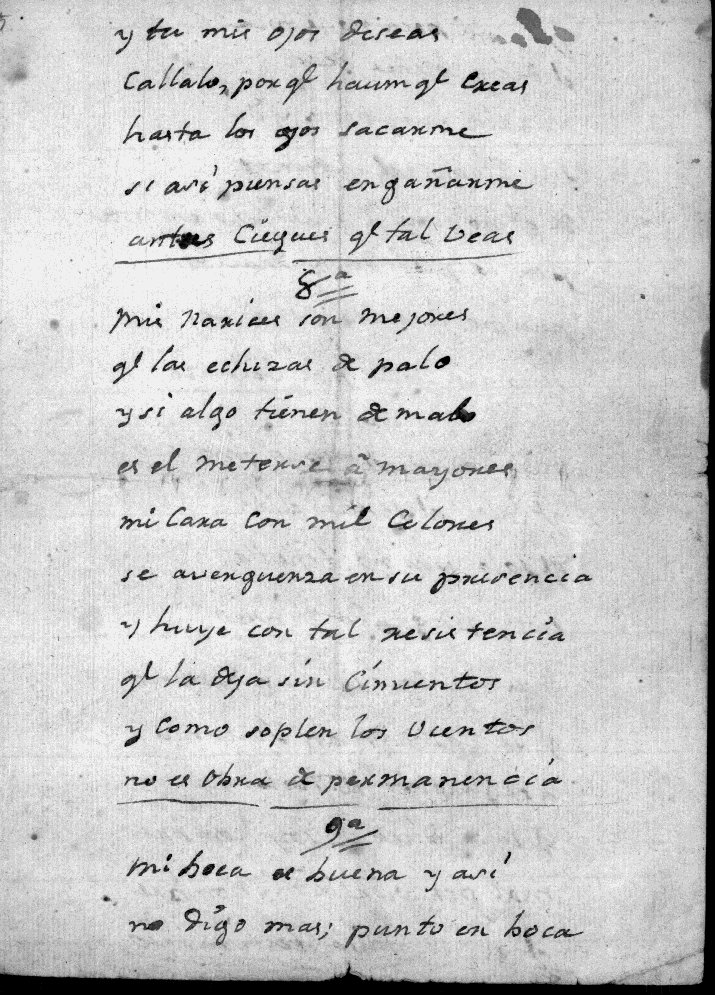 y tu mis ojos deseas
Callalo, porq.l haumq.l Creas
hasta los ojos sacarme
si así piensas engañarme
antes Ciegues q.l tal Veas
8.a
Mis narices son mejores
q.l las echizas de palo
y si algo tienen de malo
es el meterse â mayores
mi Cara Con mil Colores
se averguenza en su presencia
y huye con tal resistencia
q.l la deja sin Cimientos
y Como soplen los Vientos
no es Obra de permanencia
9.a
Mi boca es buena y así
no digo mas; punto en boca